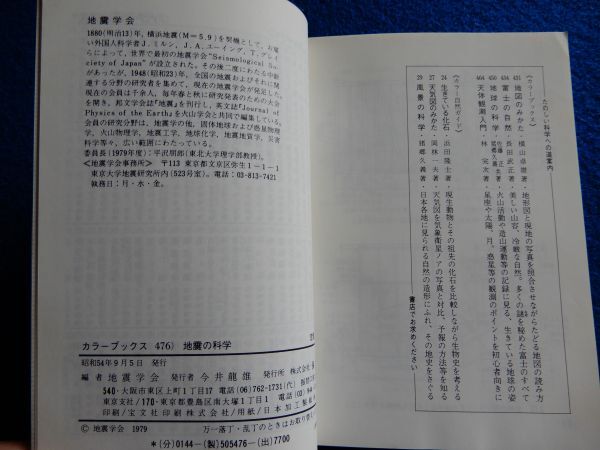 地震学会
1880(明治13)年、横浜地震(M=5.9)を契機として、お雇
い外国人科学者J.ミルン、J.A.ユーイング、T.グレイ
らによって、世界で最初の地震学会“Seismological So-
ciety of Japan”が設立された。その後二度にわたる中断
があったが、1948(昭和23)年、全国の地震およびそれに関
連する分野の研究者を集めて、現在の地震学会が発足し、
現在の会員は千余人、毎年春と秋に研究発表のための大会
を開き、邦文学会誌『地震』を刊行し、英文誌『Journal of
Physics of the Earth』を火山学会と共同で編集している。
会員の研究分野は、地震学の他、固体地球および惑星物理
学、火山物理学、地震工学、地球化学、地震地質学、災害
科学等々、広い範囲にわたっている。
委員長(1979年度):平沢朋郎(東北大学理学部教授)。
<地震学会事務所> 〒113 東京都文京区弥生1-1-1
東京大学地震研究所内(523号室)。電話:03-813-7421
執務日:月・水・金。
カラーブックス 476) 地震の科学
昭和54年9月5日 発行
編者 地震学会 発行者 今井龍雄 発行所 株式会社
540・大阪市東区上町1丁目 電話(06)762-1731(代)
東京支社/170・東京都豊島区南大塚1丁目 電話03
印刷/宝文社印刷株式会社/用紙/日本加工製紙
© 地震学会 1979 万一落丁・乱丁のときはお取り替え
*(分)0144-(製)505476-(出)7700
たのしい科学への道案内
<カラーブックス>
431 地図のみかた・横山卓雄著・地形図と現地の写真を照合させながらたどる地図の読み方
434 富士の自然・長田武正著・美しい山容、冷厳な自然。多くの謎を秘めた富士のすべて
450 地球の科学・佐藤正 猪郷久義著・火山活動や造山運動等の記録に見る、生きている地球の姿
464 天体観測入門・林完次著・星座や太陽、月、惑星等の観測のポイントを初心者向きに
<カラー自然ガイド>
24 生きている化石・浜田隆士著・現生動物とその祖先の化石を比較しながら生物史を考える
27 天気図のみかた・岡林一夫著・天気図を気象衛星ノアの写真と対比、予報の方法等を知る
29 風景の科学・猪郷久義著・日本各地に見られる自然の造形にふれ、その地史をさぐる
書店でお求めください